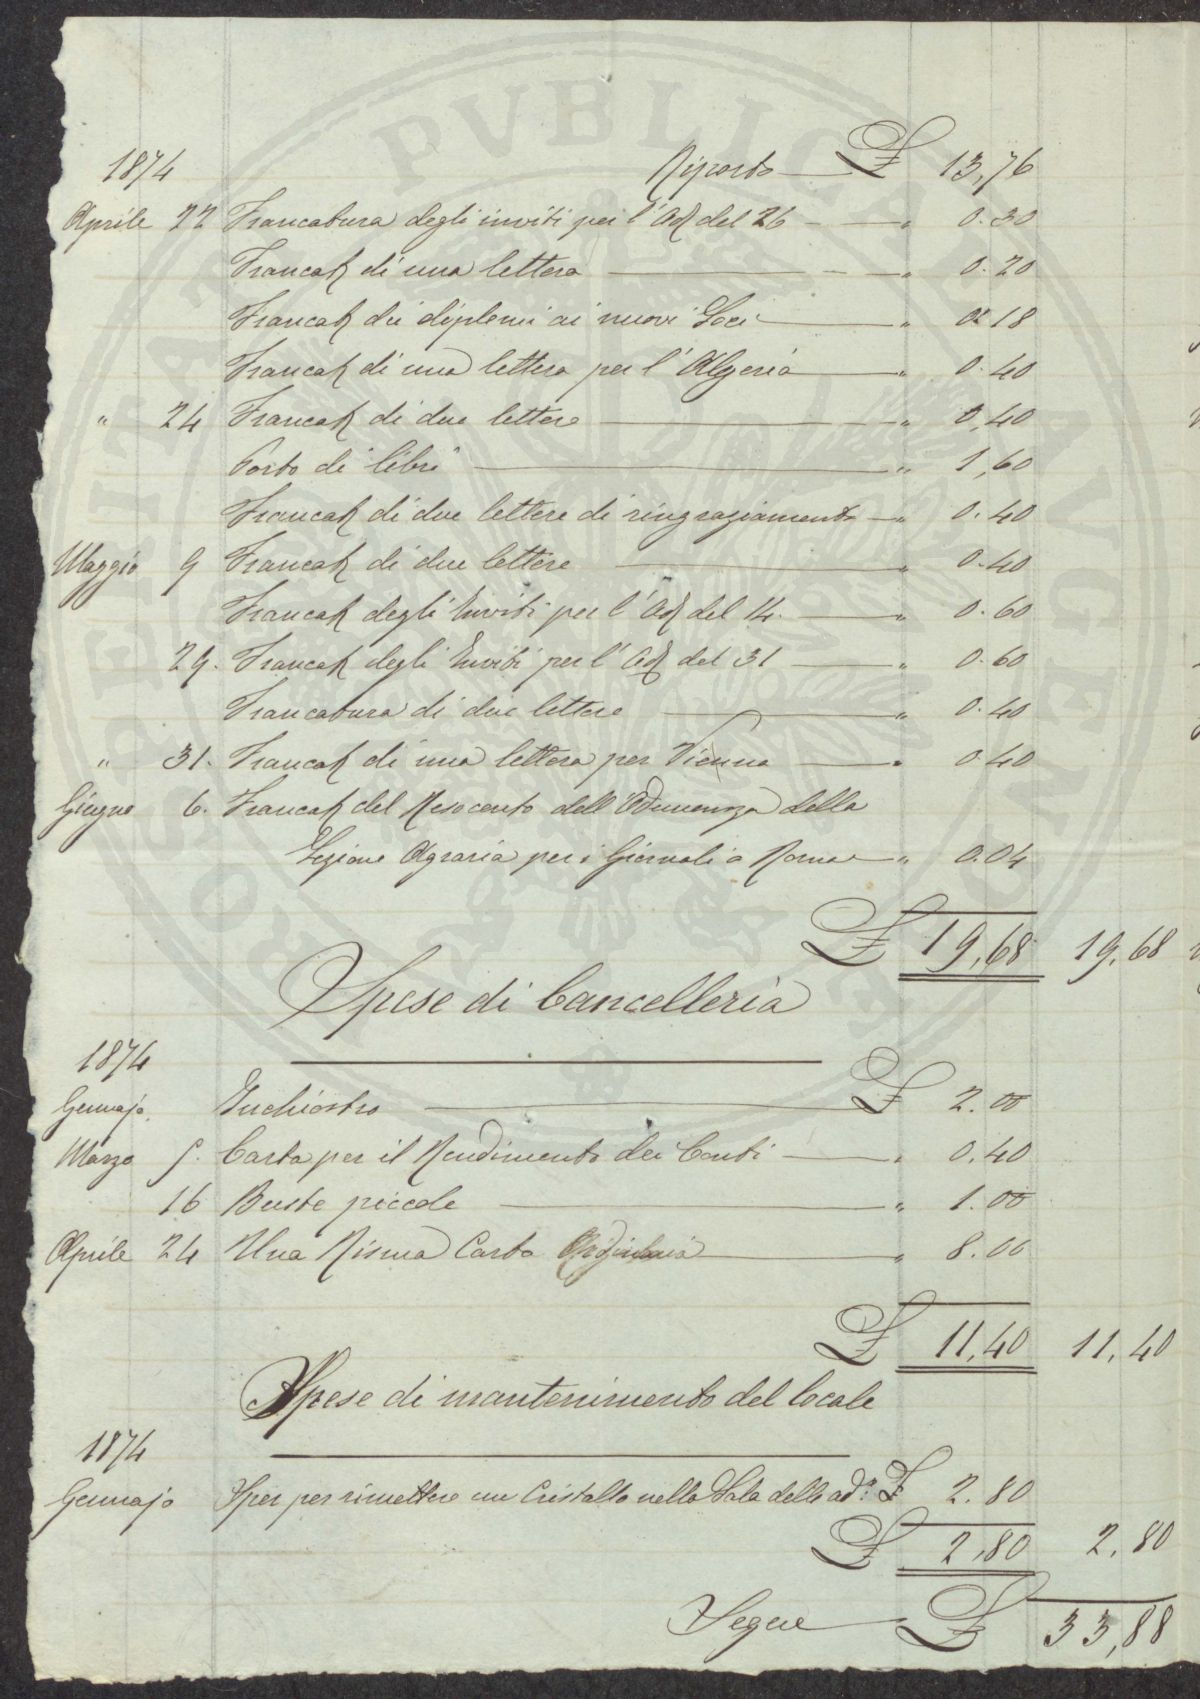 1874 Riporto £ 13,76
Aprile 22 Francatura degli inviti per l'Ad. del 26 " 0.30
Francat. di una lettera " 0.20
Francat. dei diplomi ai nuovi Soci " 0.18
Francat. di una lettera per l'Algeria " 0.40
" 24 Francat. di due lettere " 0,40
Porto di libri " 1,60
Francat. di due lettere di ringraziamento " 0.40
Maggio 9 Francat. di due lettere " 0.40
Francat. degli Inviti per l'Ad. del 14. " 0.60
29. Francat. degli Inviti per l'Ad. del 31 " 0.60
Francatura di due lettere " 0.40
" 31. Francat. di una lettera per Vienna " 0.40
Giugno 6. Francat. del Resoconto dell'Adunanza della
Sezione Agraria per i Giornali a Roma " 0.04
£ 19,68 19,68
Spese di Cancelleria
1874
Gennajo. Inchiostro £ 2.00
Marzo 5. Carta per il Rendimento dei Conti " 0.40
16 Buste piccole " 1.00
Aprile 24 Una Risma Carta " 8.00
£ 11,40 11,40
Spese di mantenimento del locale
1874
Gennajo Spes per rimettere un Cristallo nella Sala delle ad.e £ 2.80
£ 2,80 2,80
Segue £ 33,88